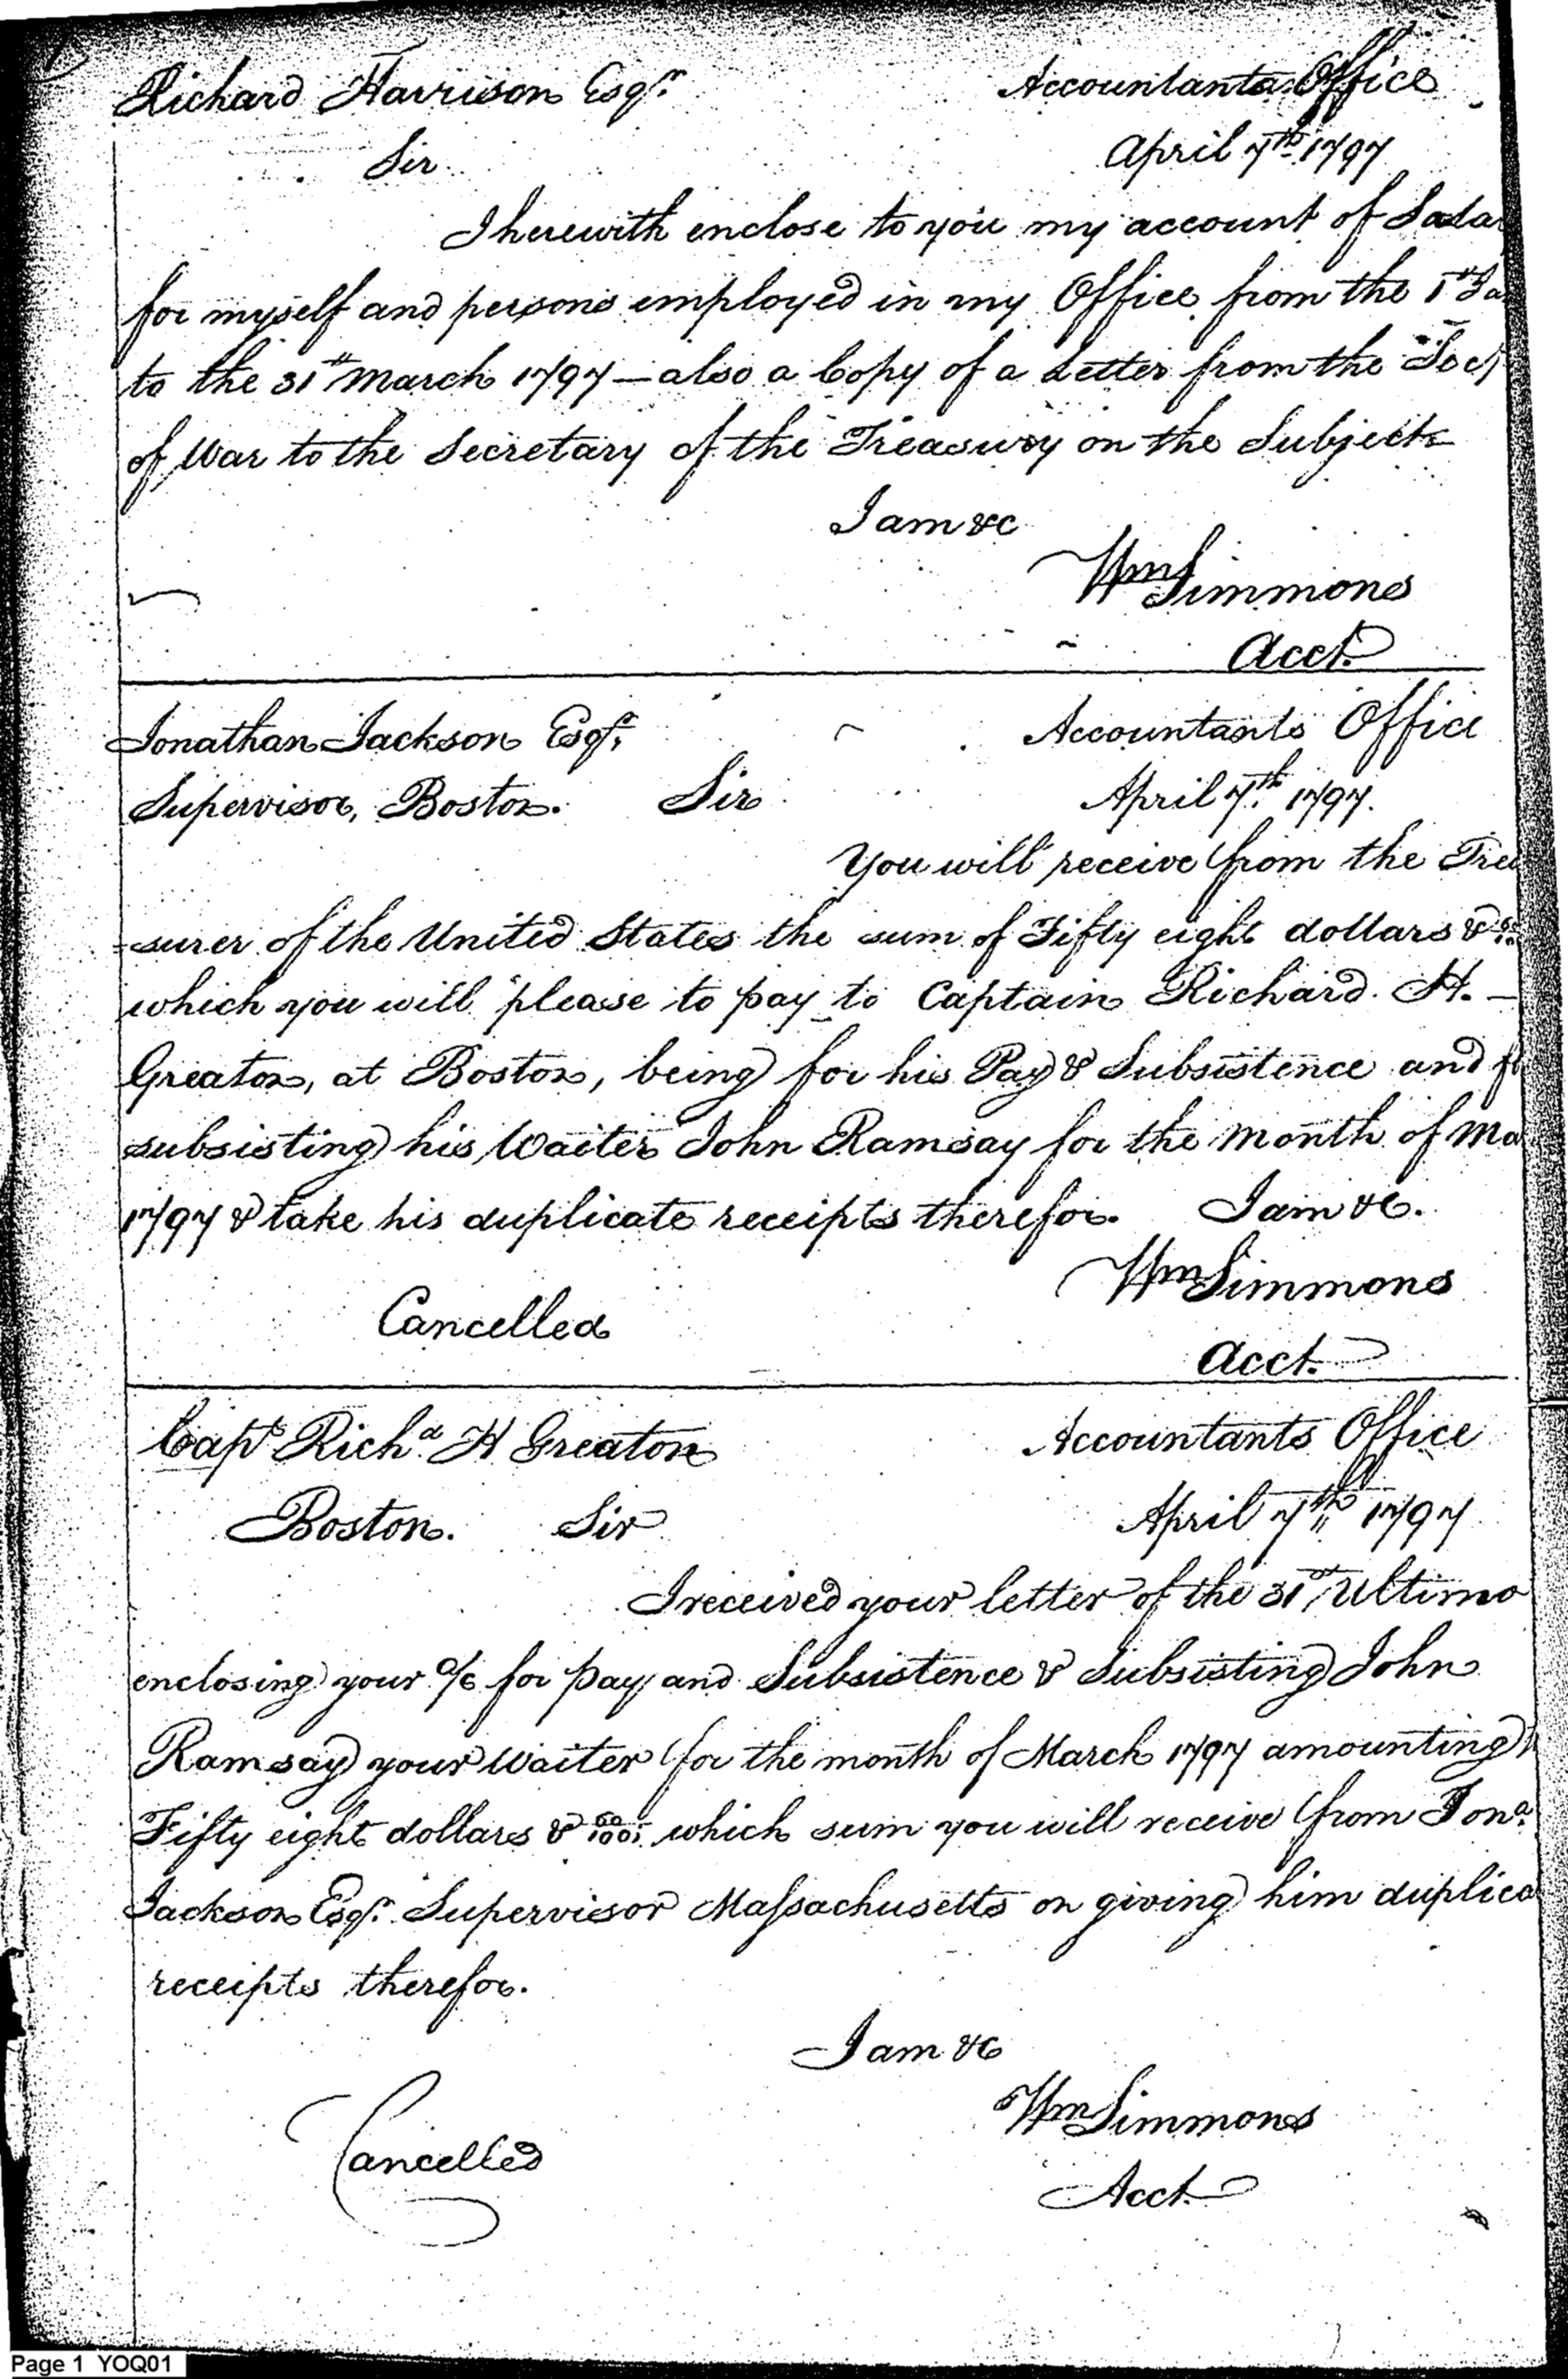 Richard Harrison Esqr. Accountants Office
Sir April 7th 1797
I herewith enclose to you my account of Sala
for myself and persons employed in my Office from the 1st Ja
to the 31st March 1797 — also a Copy of a Letter from the Secy
of War to the Secretary of the Treasury on the Subject
I am &c
Wm Simmons
Acct.
Jonathan Jackson Esqr. Accountants Office
Supervisor, Boston. Sir April 7th 1797.
You will receive from the Trea
=surer of the United States the sum of Fifty eight dollars &
which you will please to pay to Captain Richard. H. —
Greaton, at Boston, being for his Pay & Subsistence and f
subsisting his Waiter John Ramsay for the month of Ma
1797 & take his duplicate receipts therefor. I am &c.
Wm Simmons
Cancelled
Acct.
Capt Richd H Greaton Accountants Office
Boston. Sir April 7th 1797
I received your letter of the 31st Ultimo
enclosing your a/c for pay and Subsistence & Subsisting John
Ramsay your Waiter for the month of March 1797 amounting t
Fifty eight dollars & 60/100, which sum you will receive from Jona.
Jackson Esqr. Supervisor Massachusetts on giving him duplica
receipts therefor.
I am &c
Wm Simmons
Cancelled
Acct.
Page 1 YOQ01